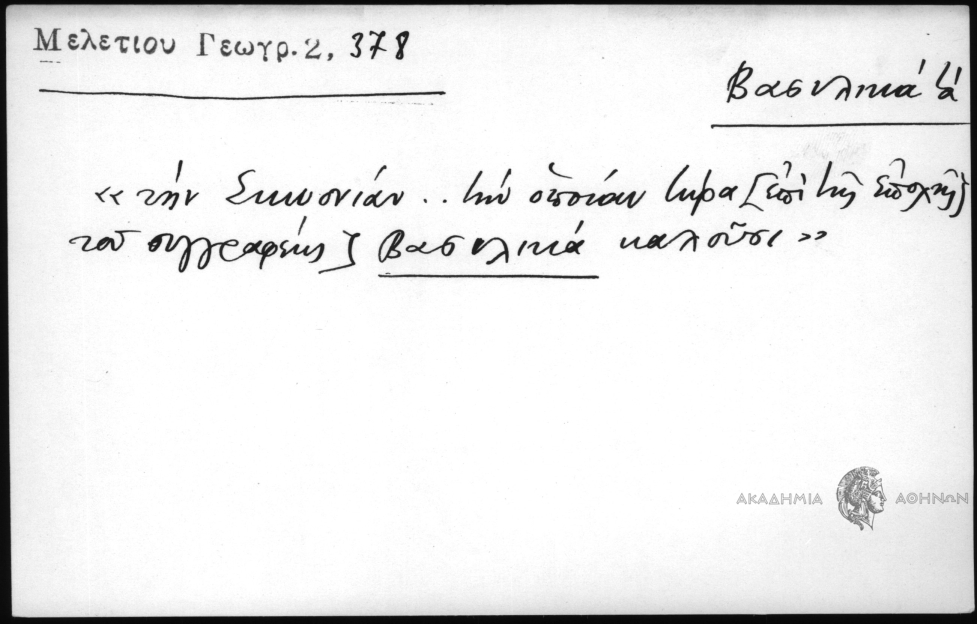 Μελετίου Γεωγρ. 2, 378
Βασιλικά τά
«τὴν Σικυονίαν .. τὴν ὁποίαν τώρα [ἐπὶ τῆς ἐποχῆς
τοῦ συγγραφέως] Βασιλικά καλοῦσι»
ΑΚΑΔΗΜΙΑ ΑΘΗΝΩΝ